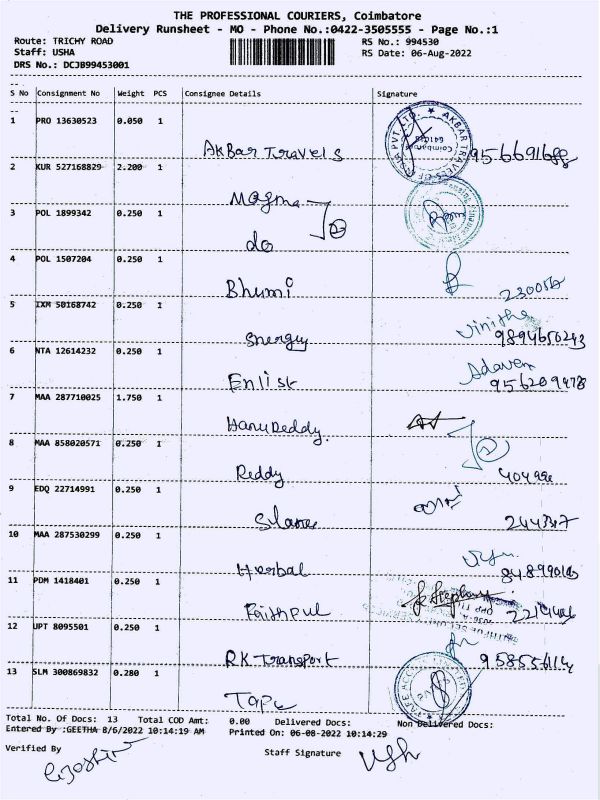 THE PROFESSIONAL COURIERS, Coimbatore
Delivery Runsheet - MO - Phone No.:0422-3505555 - Page No.:1
Route: TRICHY ROAD RS No.: 994530
Staff: USHA RS Date: 06-Aug-2022
DRS No.: DCJB99453001
S No Consignment No Weight PCS Consignee Details Signature
1 PRO 13630523 0.050 1
AKBar Travels
2 KUR 527168829 2.200 1
Magma
3 POL 1899342 0.250 1
do
4 POL 1507204 0.250 1
Bhumi
5 IXM 50168742 0.250 1 Vinitha
Snergy 9894650243
6 NTA 12614232 0.250 1
Enlist 9562099478
7 MAA 287710025 1.750 1
HanuReddy
8 MAA 858020571 0.250 1
Reddy
9 EDQ 22714991 0.250 1
10 MAA 287530299 0.250 1
Herbal
11 PDM 1418401 0.250 1
Faithful
12 UPT 8095501 0.250 1
RK Transport
13 SLM 300869832 0.280 1
Tape
Total No. Of Docs: 13 Total COD Amt: 0.00 Delivered Docs: Non Delivered Docs:
Entered By :GEETHA 8/6/2022 10:14:19 AM Printed On: 06-08-2022 10:14:29
Verified By Staff Signature